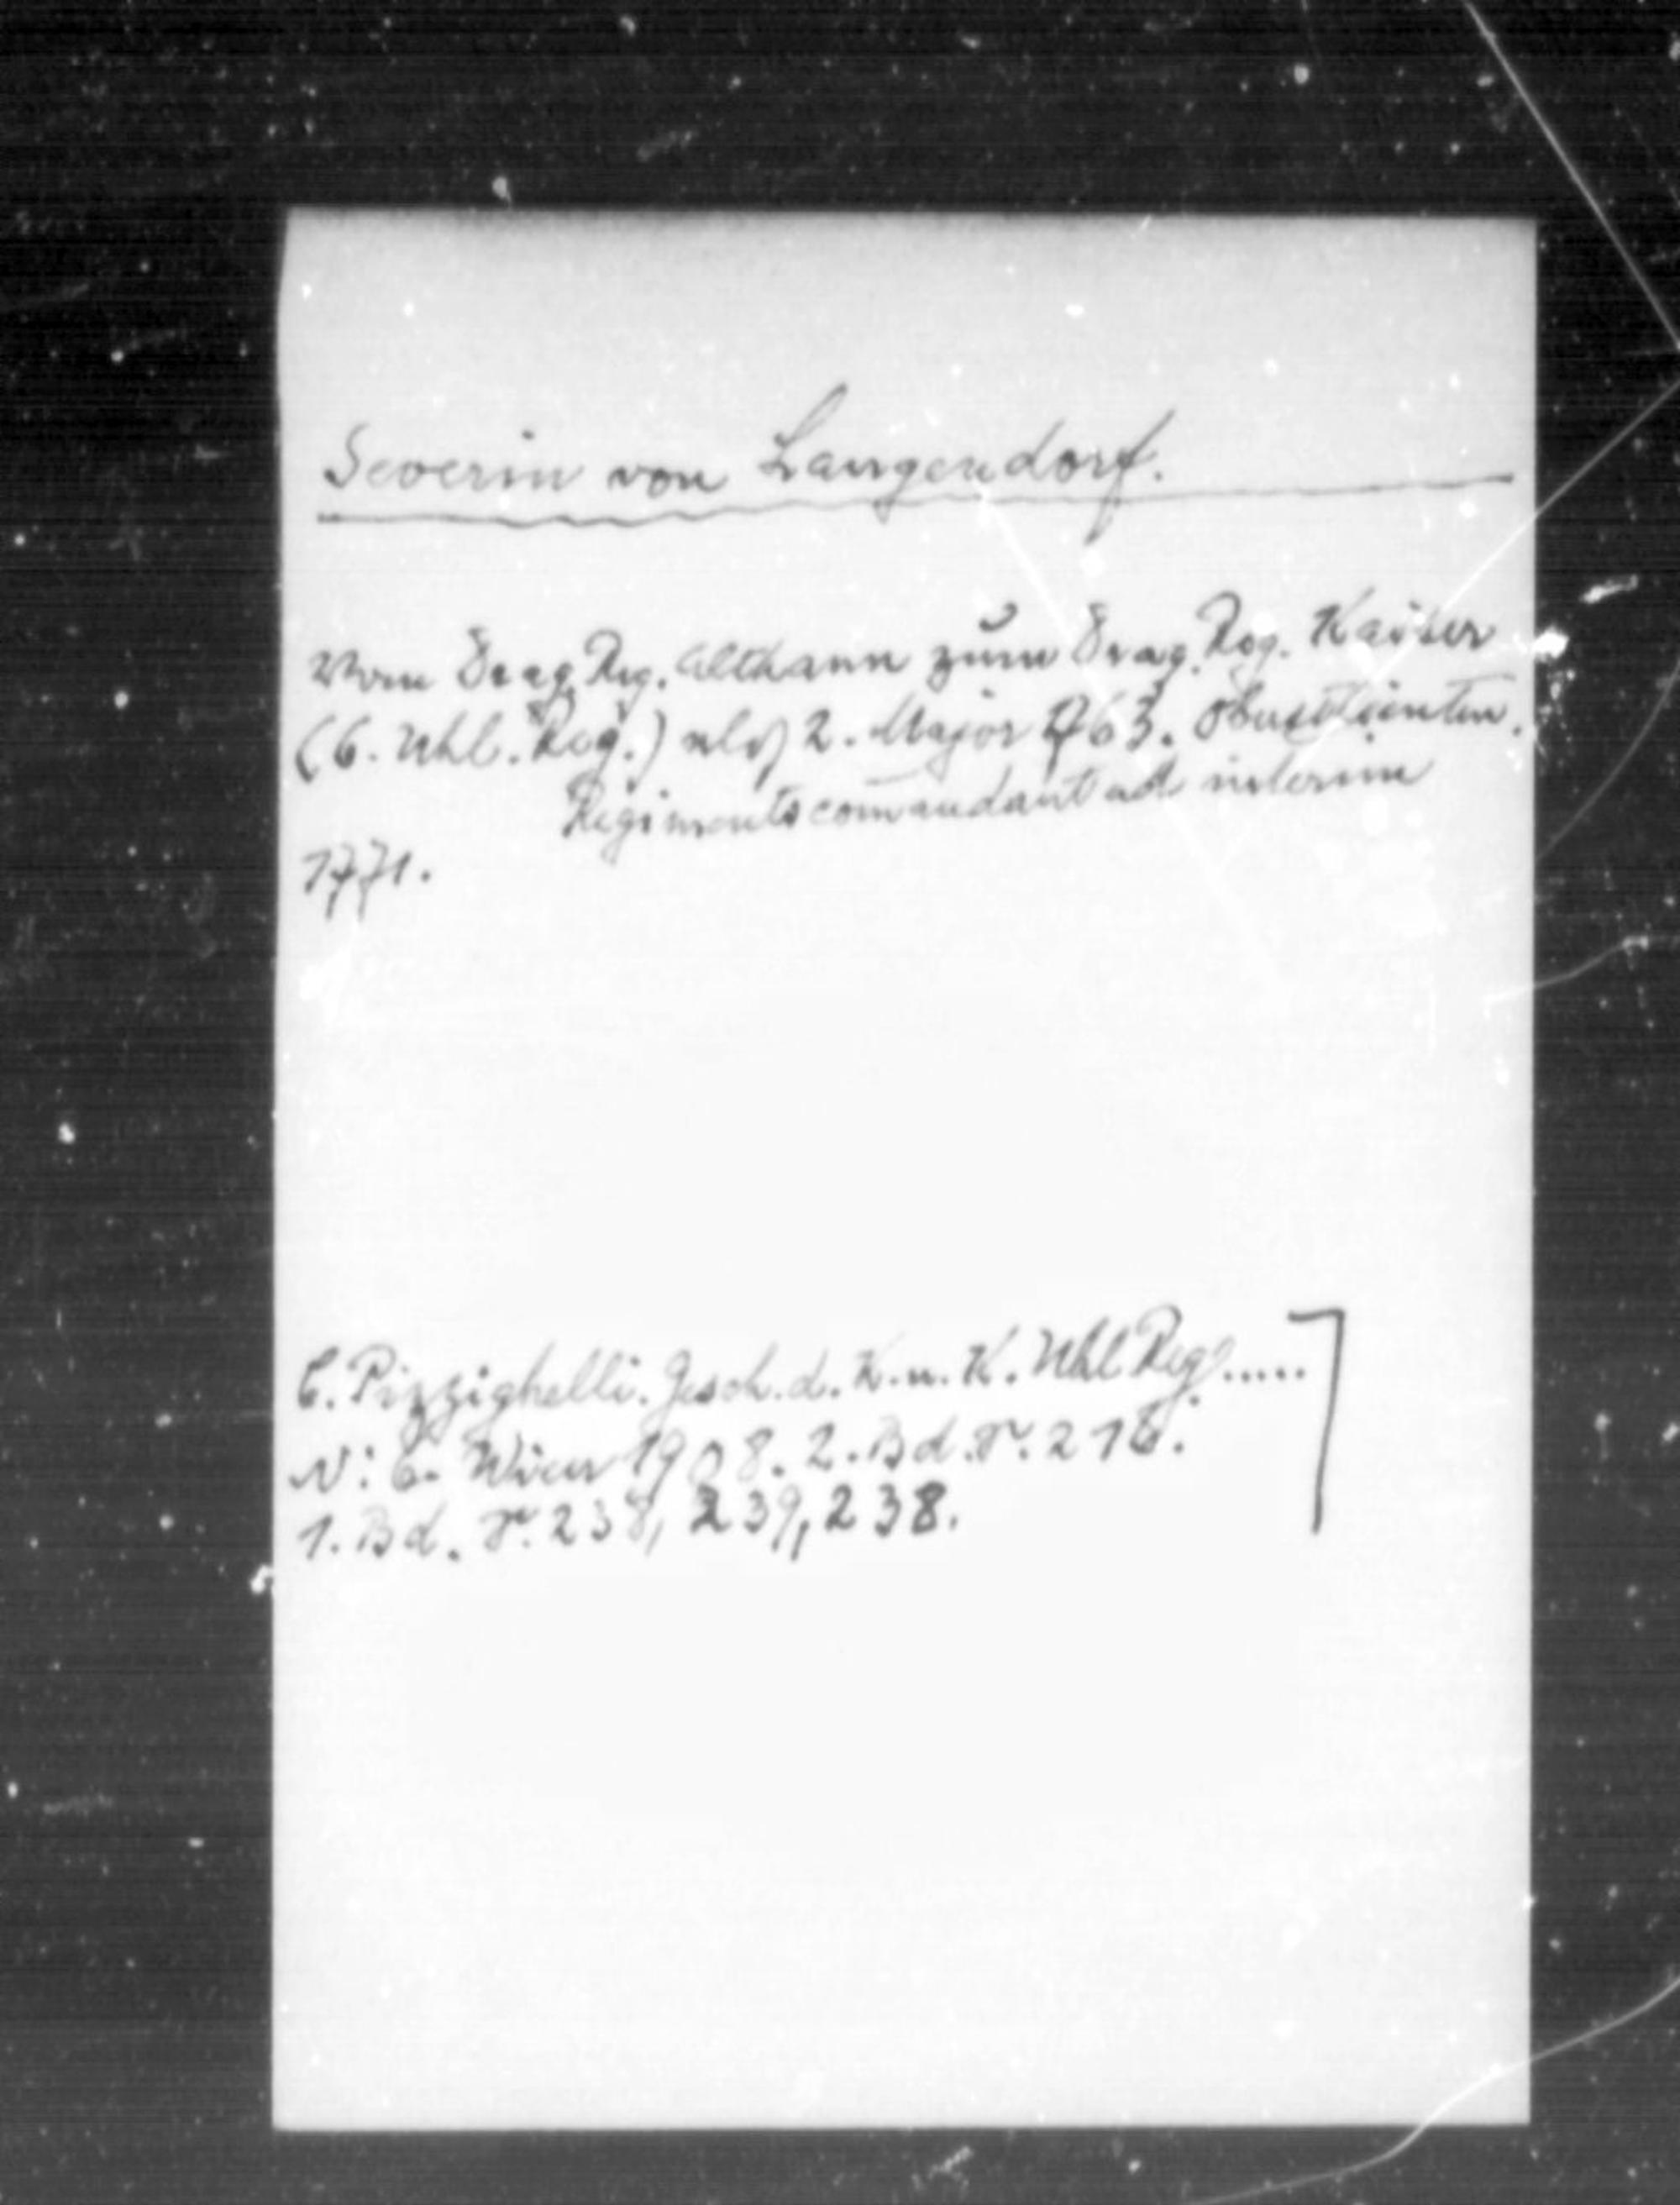 Severin von Langendorf.
Vom Drag. Reg. Althann zum Drag. Reg. Kaiser
(6. Uhl. Reg.) als 2. Major 1763. Oberstlieuten.
Regimentscomandant ad interim
1771.
C. Pizzighelli. Gesch. d. K. u. K. Uhl Reg.....
N: 6. Wien 1908. 2. Bd. S. 216.
1. Bd. S. 238, 239, 238.